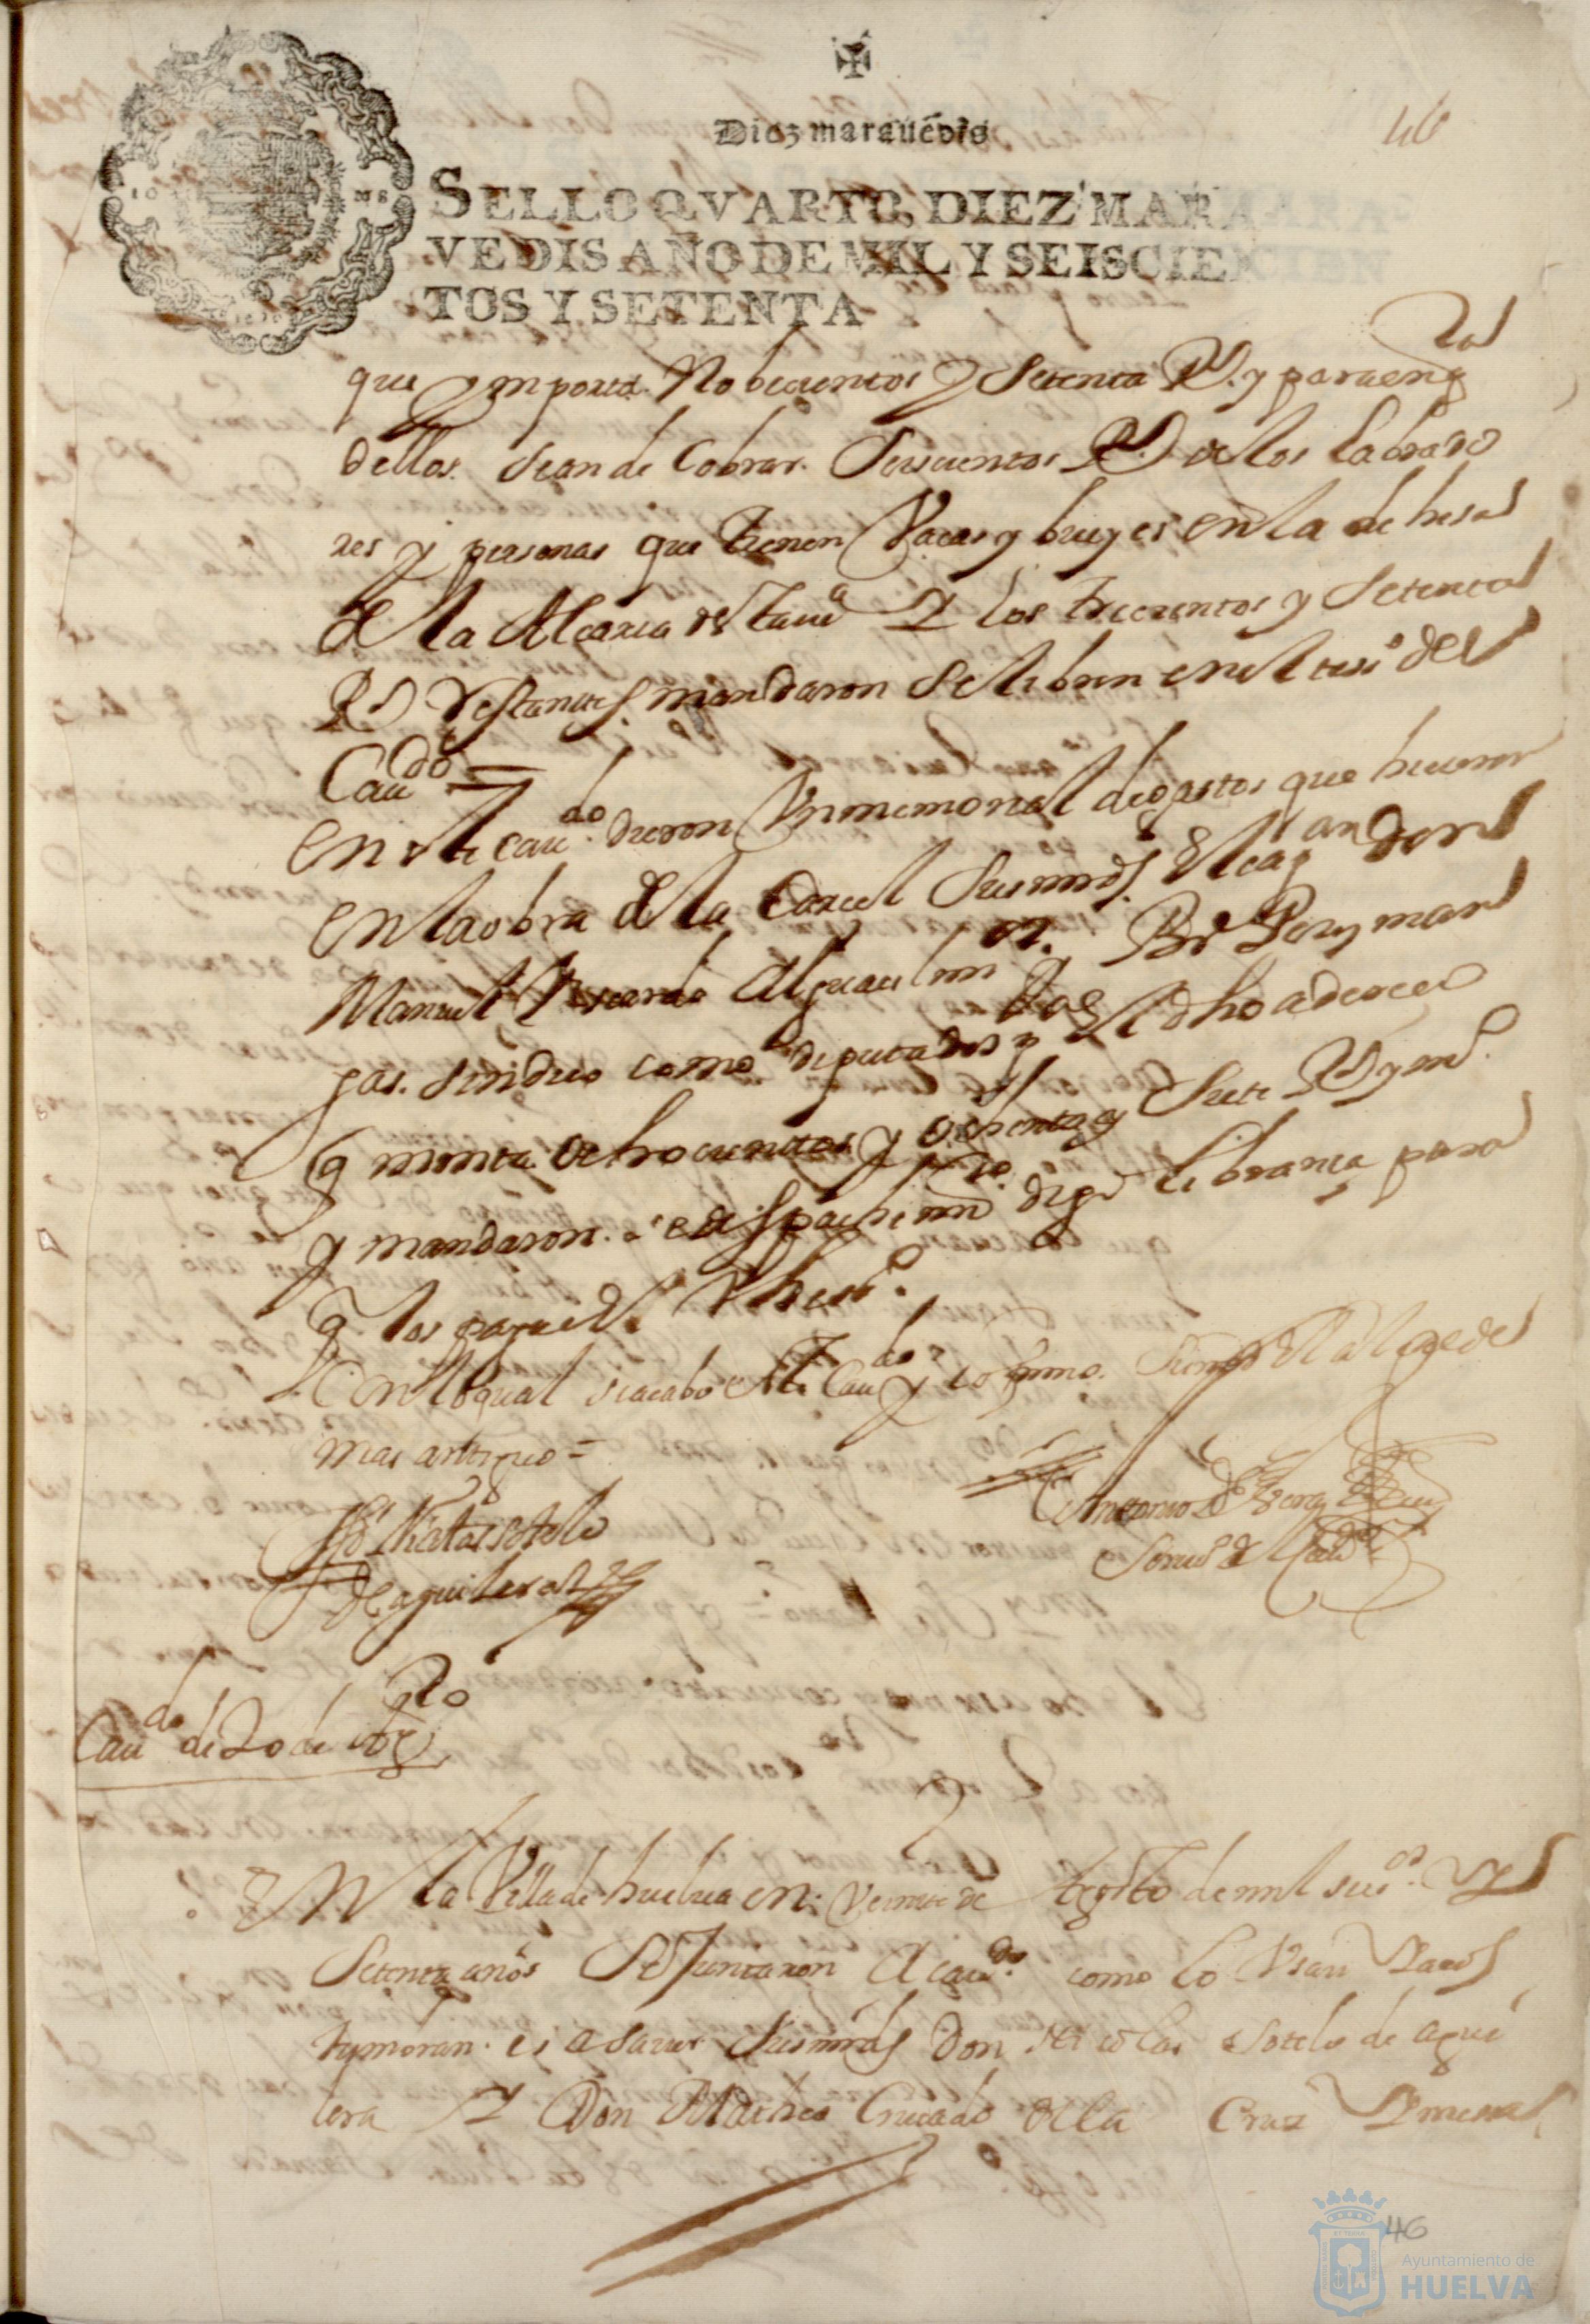 Diez marauedis
46
SELLO QVARTO, DIEZ MARA
VEDIS AÑO DE MIL Y SEISCIEN
TOS Y SETENTA
que ymporta Nobecientos y Setenta Rs. y para en qta
dellos sean de Cobrar Seiscientos Rs de los labrado
res y personas que tienen Vacas y bueyes en la dehesa
de la Alcaria desta Va Y los trecientos y Setenta
Rs Restantes mandaron se libren en el del
Caudo =
En este caudo dieron Vn memorial de gastos que hicieron
en la obra de la Carcel Sus mrds El capan don
Manuel Alguacil mor y Br Perez mar
gas sindico como diputados el dho aderezo
q monta ochocientos y ochenta y Siete Rs y mo
y mandaron se despache libranca para
q los pague el
Con lo qual se acabo este Caudo y lo firmo el alcalde
mas antiguo =
Dn Nicolas sotelo
de aguilera
Antonio de
Scriuo de Caudo
Caudo de 20 de Agto
En la Villa de huelua en Veinte de Agosto de mil seisos Y
Setenta años Se Juntaron A caudo como lo Vsan Y acos
tumbran es a sauer Sus mrds Don Nicolas Sotelo de agui
lera Y Don Matheo Cruzado de la Cruz
46
Ayuntamiento de
HUELVA